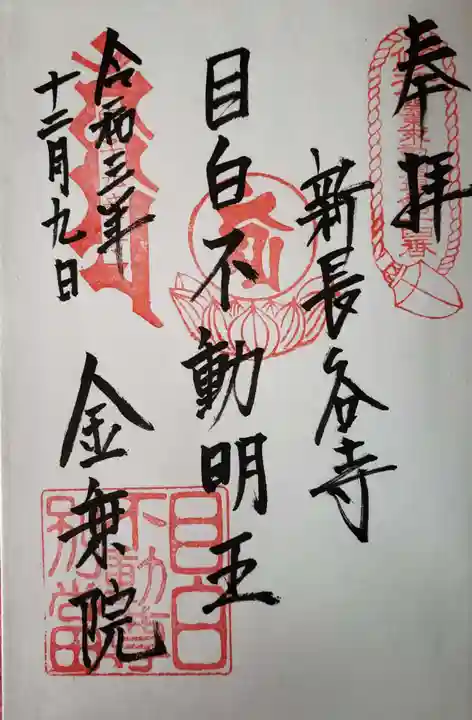 奉拝
新長谷寺
目白不動明王
金乗院
令和三年
十二月九日
目白
不動尊
別當